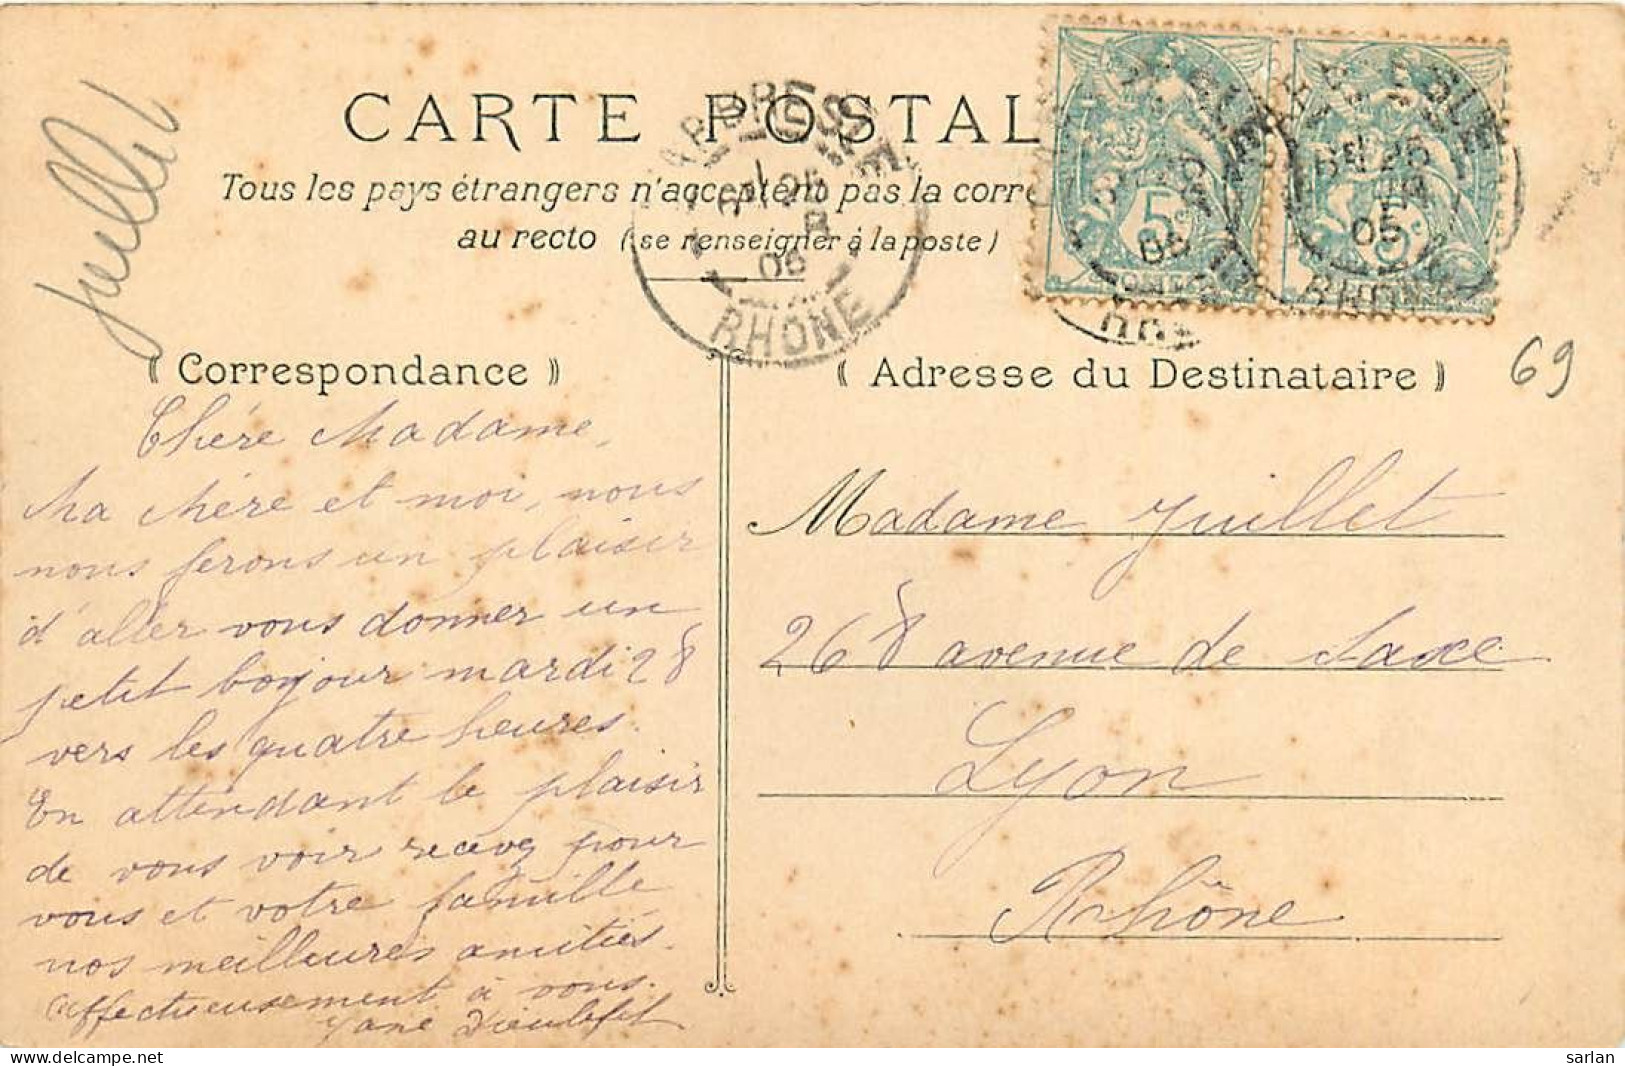 juillet
CARTE POSTAL
Tous les pays étrangers n'acceptent pas la corre
au recto (se renseigner à la poste)
RHÔNE
05
05
RHONE
69
⸨ Correspondance ⸩
Chére Madame,
Ma Mére et moi, nous
nous ferons un plaisir
d'aller vous donner un
petit bonjour mardi 28
vers les quatre heures.
En attendant le plaisir
de vous voir recevez pour
vous et votre famille
nos meilleures amitiés.
affectueusement à vous.
Jane Dieulefit
⸨ Adresse du Destinataire ⸩
Madame Juillet
268 avenue de Saxe
Lyon
Rhône
delcampe.net
sarlan